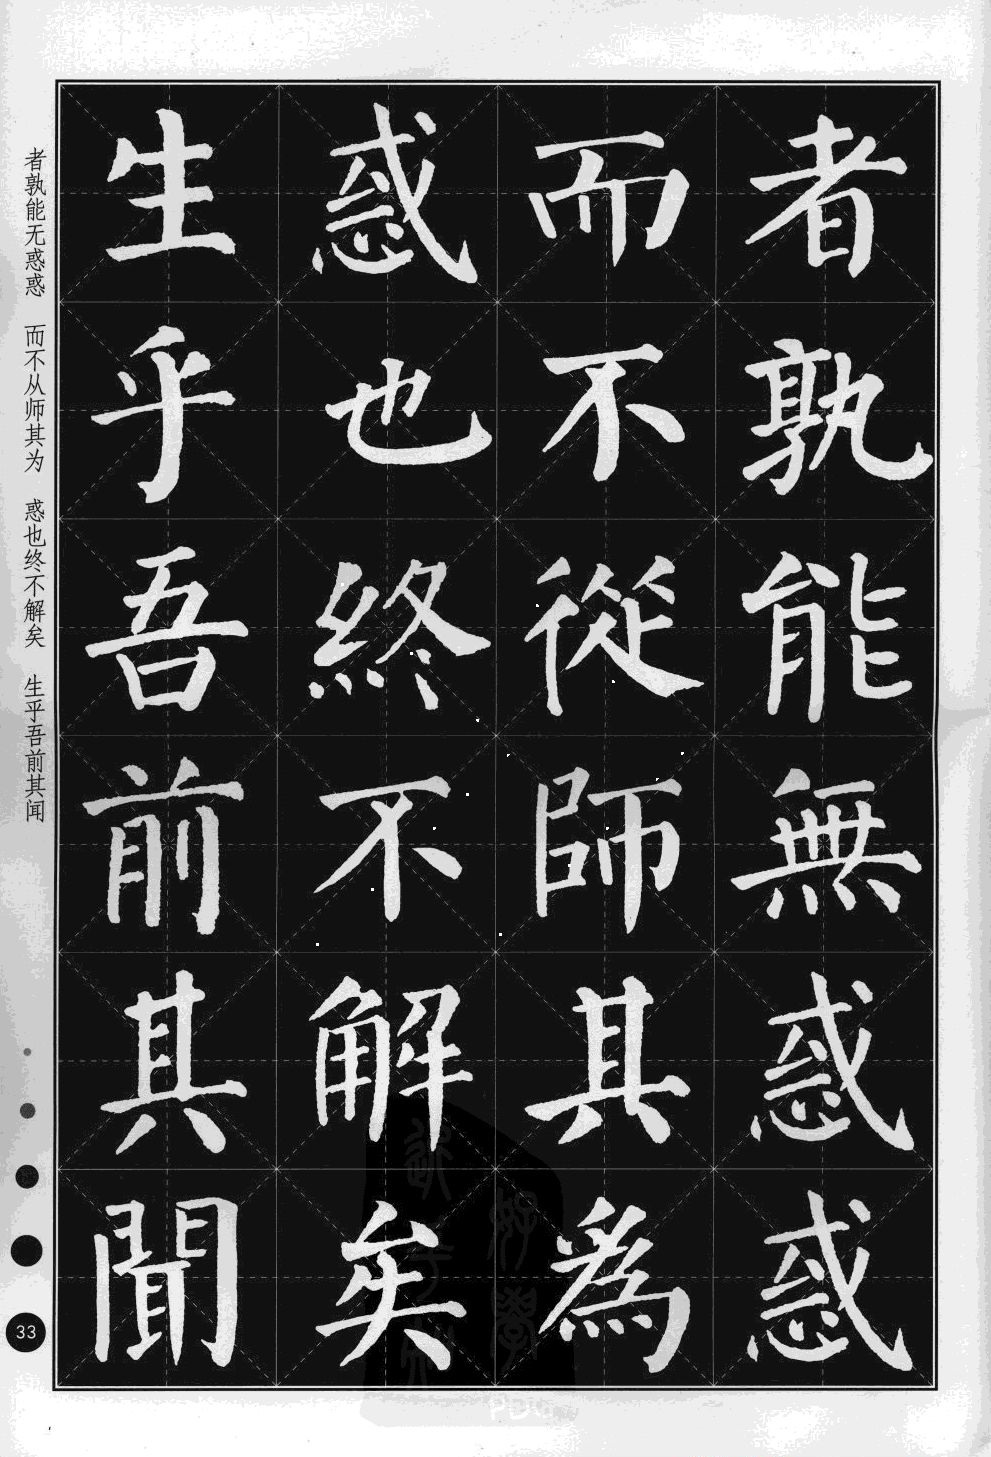 者孰能無惑惑
而不從師其為
惑也終不解矣
生乎吾前其聞
者孰能无惑惑 而不从师其为 惑也终不解矣 生乎吾前其闻
33